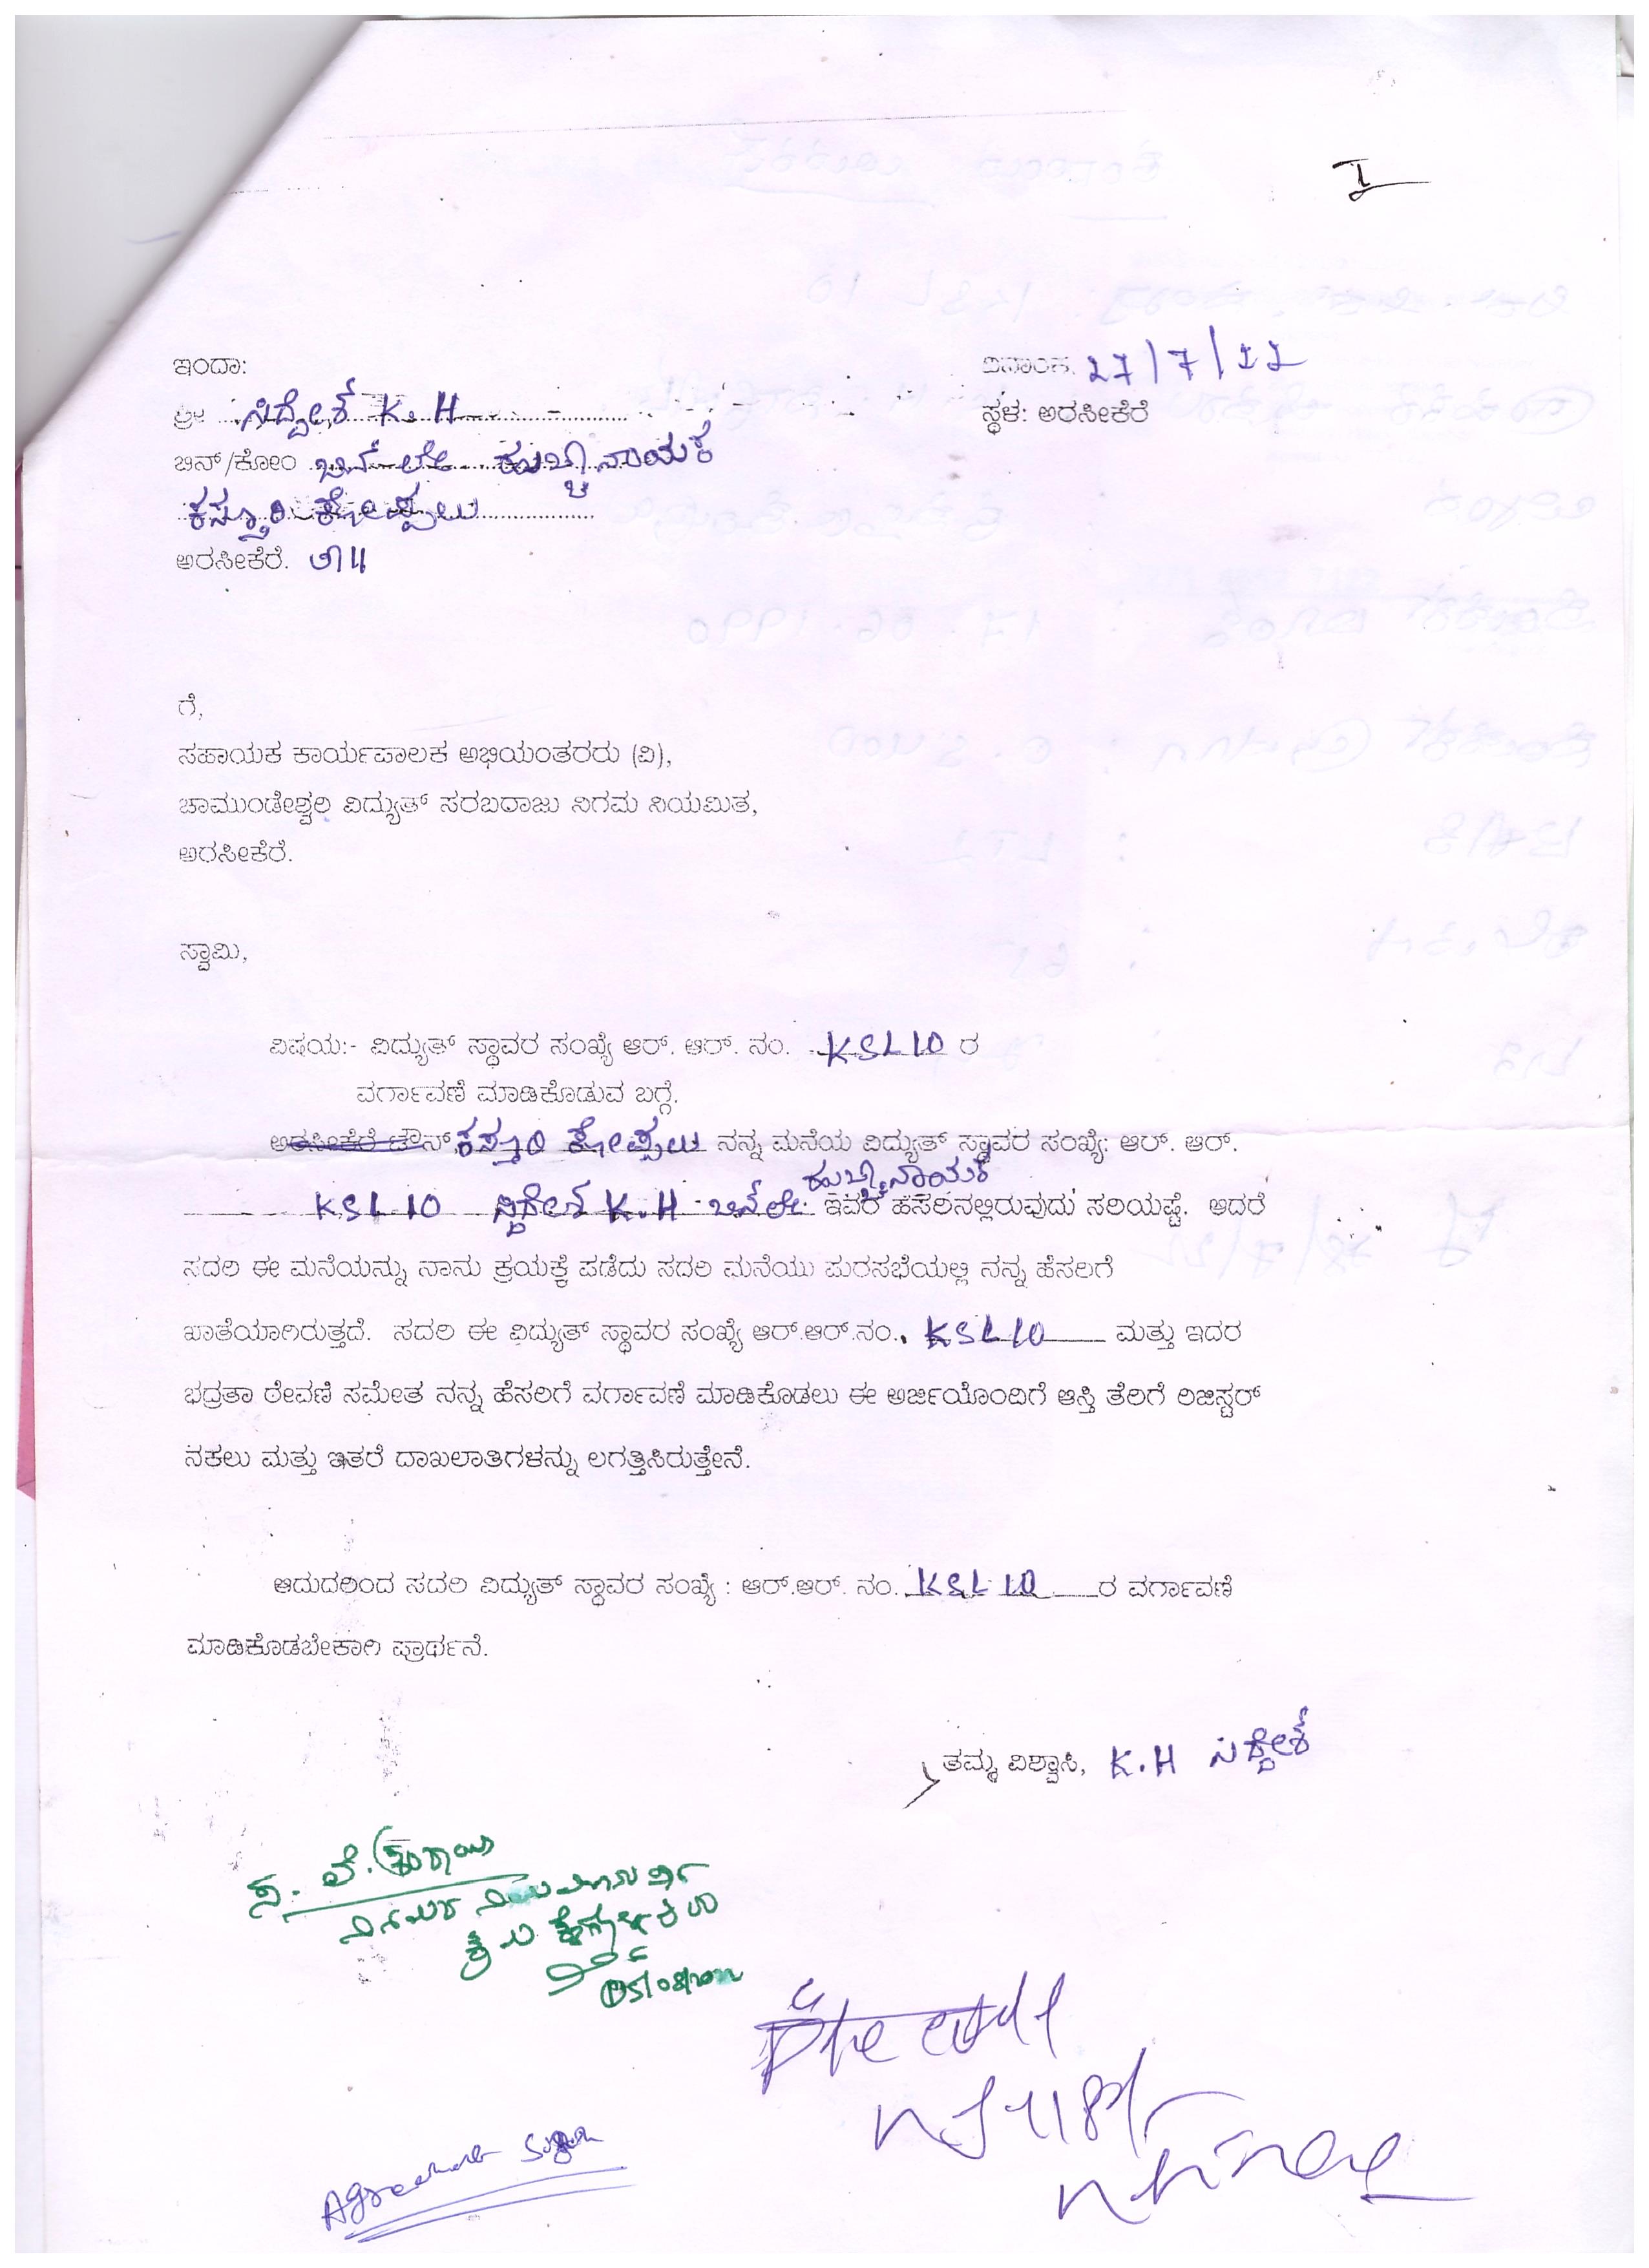 I
ಇಂದಾ:
ದಿನಾಂಕ: 27/7/22
ಶ್ರೀ ಸಿದ್ದೇಶ್ K.H
ಸ್ಥಳ: ಅರಸೀಕೆರೆ
ಬಿನ್/ಕೋಂ ಬಿನ್ ಲೇ ಹುಚ್ಚಿನಾಯಕ
ಕಸ್ತೂರಿ ಕೋಪ್ಪಲು
ಅರಸೀಕೆರೆ. ತಾ||
ಗೆ,
ಸಹಾಯಕ ಕಾರ್ಯಪಾಲಕ ಅಭಿಯಂತರರು (ವಿ),
ಚಾಮುಂಡೇಶ್ವರಿ ವಿದ್ಯುತ್ ಸರಬರಾಜು ನಿಗಮ ನಿಯಮಿತ,
ಅರಸೀಕೆರೆ.
ಸ್ವಾಮಿ,
ವಿಷಯ:- ವಿದ್ಯುತ್ ಸ್ಥಾವರ ಸಂಖ್ಯೆ ಆರ್. ಆರ್. ನಂ. KSL10 ರ
ವರ್ಗಾವಣೆ ಮಾಡಿಕೊಡುವ ಬಗ್ಗೆ.
ಅರಸೀಕೆರೆ ಟೌನ್, ಕಸ್ತೂರಿ ಕೋಪ್ಪಲು ನನ್ನ ಮನೆಯ ವಿದ್ಯುತ್ ಸ್ಥಾವರ ಸಂಖ್ಯೆ: ಆರ್. ಆರ್.
ಹುಚ್ಚಿನಾಯಕ
KSL10 ಸಿದ್ದೇಶ್ K.H ಬಿನ್ ಲೇ. ಇವರ ಹೆಸರಿನಲ್ಲಿರುವುದು ಸರಿಯಷ್ಟೆ. ಆದರೆ
ಸದರಿ ಈ ಮನೆಯನ್ನು ನಾನು ಕ್ರಯಕ್ಕೆ ಪಡೆದು ಸದರಿ ಮನೆಯು ಪುರಸಭೆಯಲ್ಲಿ ನನ್ನ ಹೆಸರಿಗೆ
ಖಾತೆಯಾಗಿರುತ್ತದೆ. ಸದರಿ ಈ ವಿದ್ಯುತ್ ಸ್ಥಾವರ ಸಂಖ್ಯೆ ಆರ್.ಆರ್.ನಂ. KSL10 ಮತ್ತು ಇದರ
ಭದ್ರತಾ ಠೇವಣಿ ಸಮೇತ ನನ್ನ ಹೆಸರಿಗೆ ವರ್ಗಾವಣೆ ಮಾಡಿಕೊಡಲು ಈ ಅರ್ಜಿಯೊಂದಿಗೆ ಆಸ್ತಿ ತೆರಿಗೆ ರಿಜಿಸ್ಟರ್
ನಕಲು ಮತ್ತು ಇತರೆ ದಾಖಲಾತಿಗಳನ್ನು ಲಗತ್ತಿಸಿರುತ್ತೇನೆ.
ಆದುದರಿಂದ ಸದರಿ ವಿದ್ಯುತ್ ಸ್ಥಾವರ ಸಂಖ್ಯೆ : ಆರ್.ಆರ್. ನಂ. KSL10 ರ ವರ್ಗಾವಣೆ
ಮಾಡಿಕೊಡಬೇಕಾಗಿ ಪ್ರಾರ್ಥನೆ.
ತಮ್ಮ ವಿಶ್ವಾಸಿ, K.H ಸಿದ್ದೇಶ್
Agreement